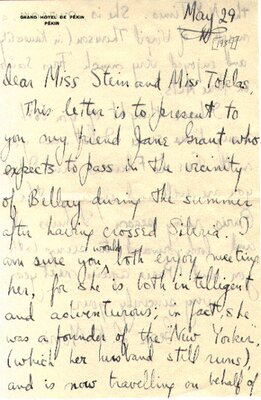 GRAND HÔTEL DE PÉKIN
PÉKIN
May 29
Dear Miss Stein and Miss Toklas,
This letter is to present to
you my friend Jane Grant who
expects to pass in the vicinity
of Billay during the summer
after having crossed Siberia. I
am sure you would both enjoy meeting
her, for she is both intelligent
and adventurous; in fact, she
was a founder of the "New Yorker",
(which her husband still runs),
and is now travelling on behalf of